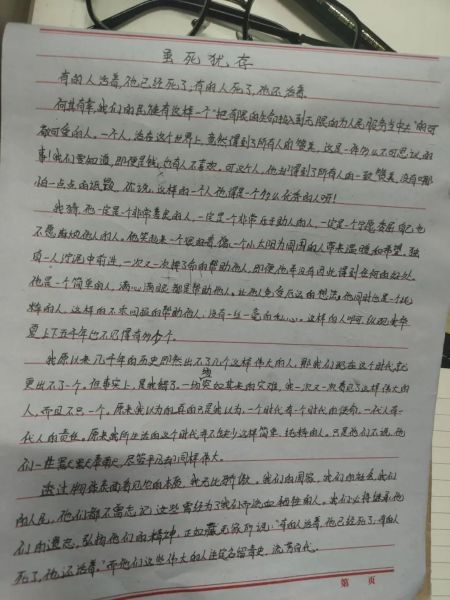 虽死犹存
有的人活着，他已经死了；有的人死了，他还活着。
何其有幸，我们的民族有这样一个"把有限的生命投入到无限的为人民服务当中去"的可
敬可爱的人。一个人，活在这个世界上，竟然得到了所有人的赞美，这是一件多么不可思议的
事！我们要知道，即便是钱，也有人不喜欢。可这个人，他却得到了所有人的一致赞美，没有哪
怕一点点的诋毁。你说，这样的一个人他得是一个多么优秀的人呀！
我猜，他一定是一个非常善良的人，一定是个非常乐于助人的人，一定是个宁愿委屈自己也
不愿麻烦他人的人。他笑起来一定很好看，像一个小太阳为周围的人带来温暖和希望。独
自一人泥泞中前进，一次又一次拼了命的帮助他人，即便他并没有因此得到任何的好处。
他是一个简单的人，满心满眼都是帮助他人，让他人免受厄运的想法；他同时也是个纯
粹的人，这样的不求回报的帮助他人，没有一丝一毫的私心。这样的人啊，纵观我华
夏上下五千年也不见得有多少个。
我原以为几千年的历史既然出不了几个这样伟大的人，那我们现在这个时代，就
更出不了一个。但事实上，是我错了，一场突如其来的灾难，我一次又一次看见了这样伟大的
人，而且不只一个。原来我以为的真的只是我以为，一个时代有一个时代的使命，一代人有一
代人的责任。原来我所生活的这个时代并不缺少这样简单、纯粹的人。只是他们不说，他
们一直默默奉献，尽管平凡却同样伟大。
透过物体表面看见它的本质，我无比骄傲。我们的国家，我们的社会，我们
的人民，他们都不曾忘记这些曾经为了我们而流血牺牲的人。我们必将继承他
们的遗志，弘扬他们的精神，正如臧克家所说："有的人活着，他已经死了；有的人
死了，他还活着。"而他们这些伟大的人注定名留青史，流芳百代。
第 页